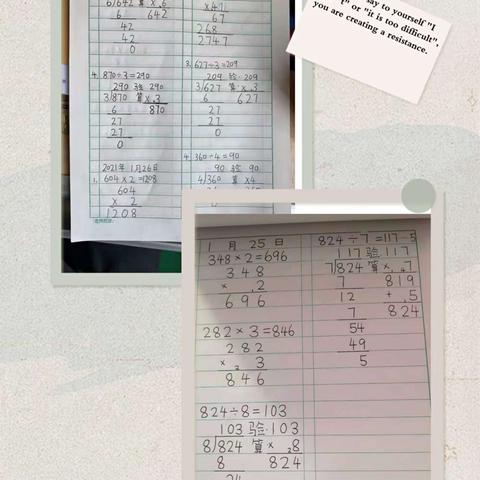 say to yourself "I
" or "it is too difficult",
you are creating a resistance.
6/642 算 × 6
6 642
42
42
0
×4
67
268
2747
4. 870÷3=290
290 验 290
3/870 算 × 3
6 870
27
27
0
2021年1月26日
1. 604×2=1208
604
× 2
1208
3. 627÷3=209
209 验·209
3/627 算 × 3
6 627
27
27
0
4. 360÷4=90
90 验 90
4/360 算 ×4
1月25日
348×2=696
348
× 2
696
282×3=846
282
× ₂3
846
824÷8=103
103 验·103
8/824 算 × ₂8
8 824
24
824÷7=117…5
117 验 117
7/824 算 × ₄7
7 819
12 + 5
7 824
54
49
5